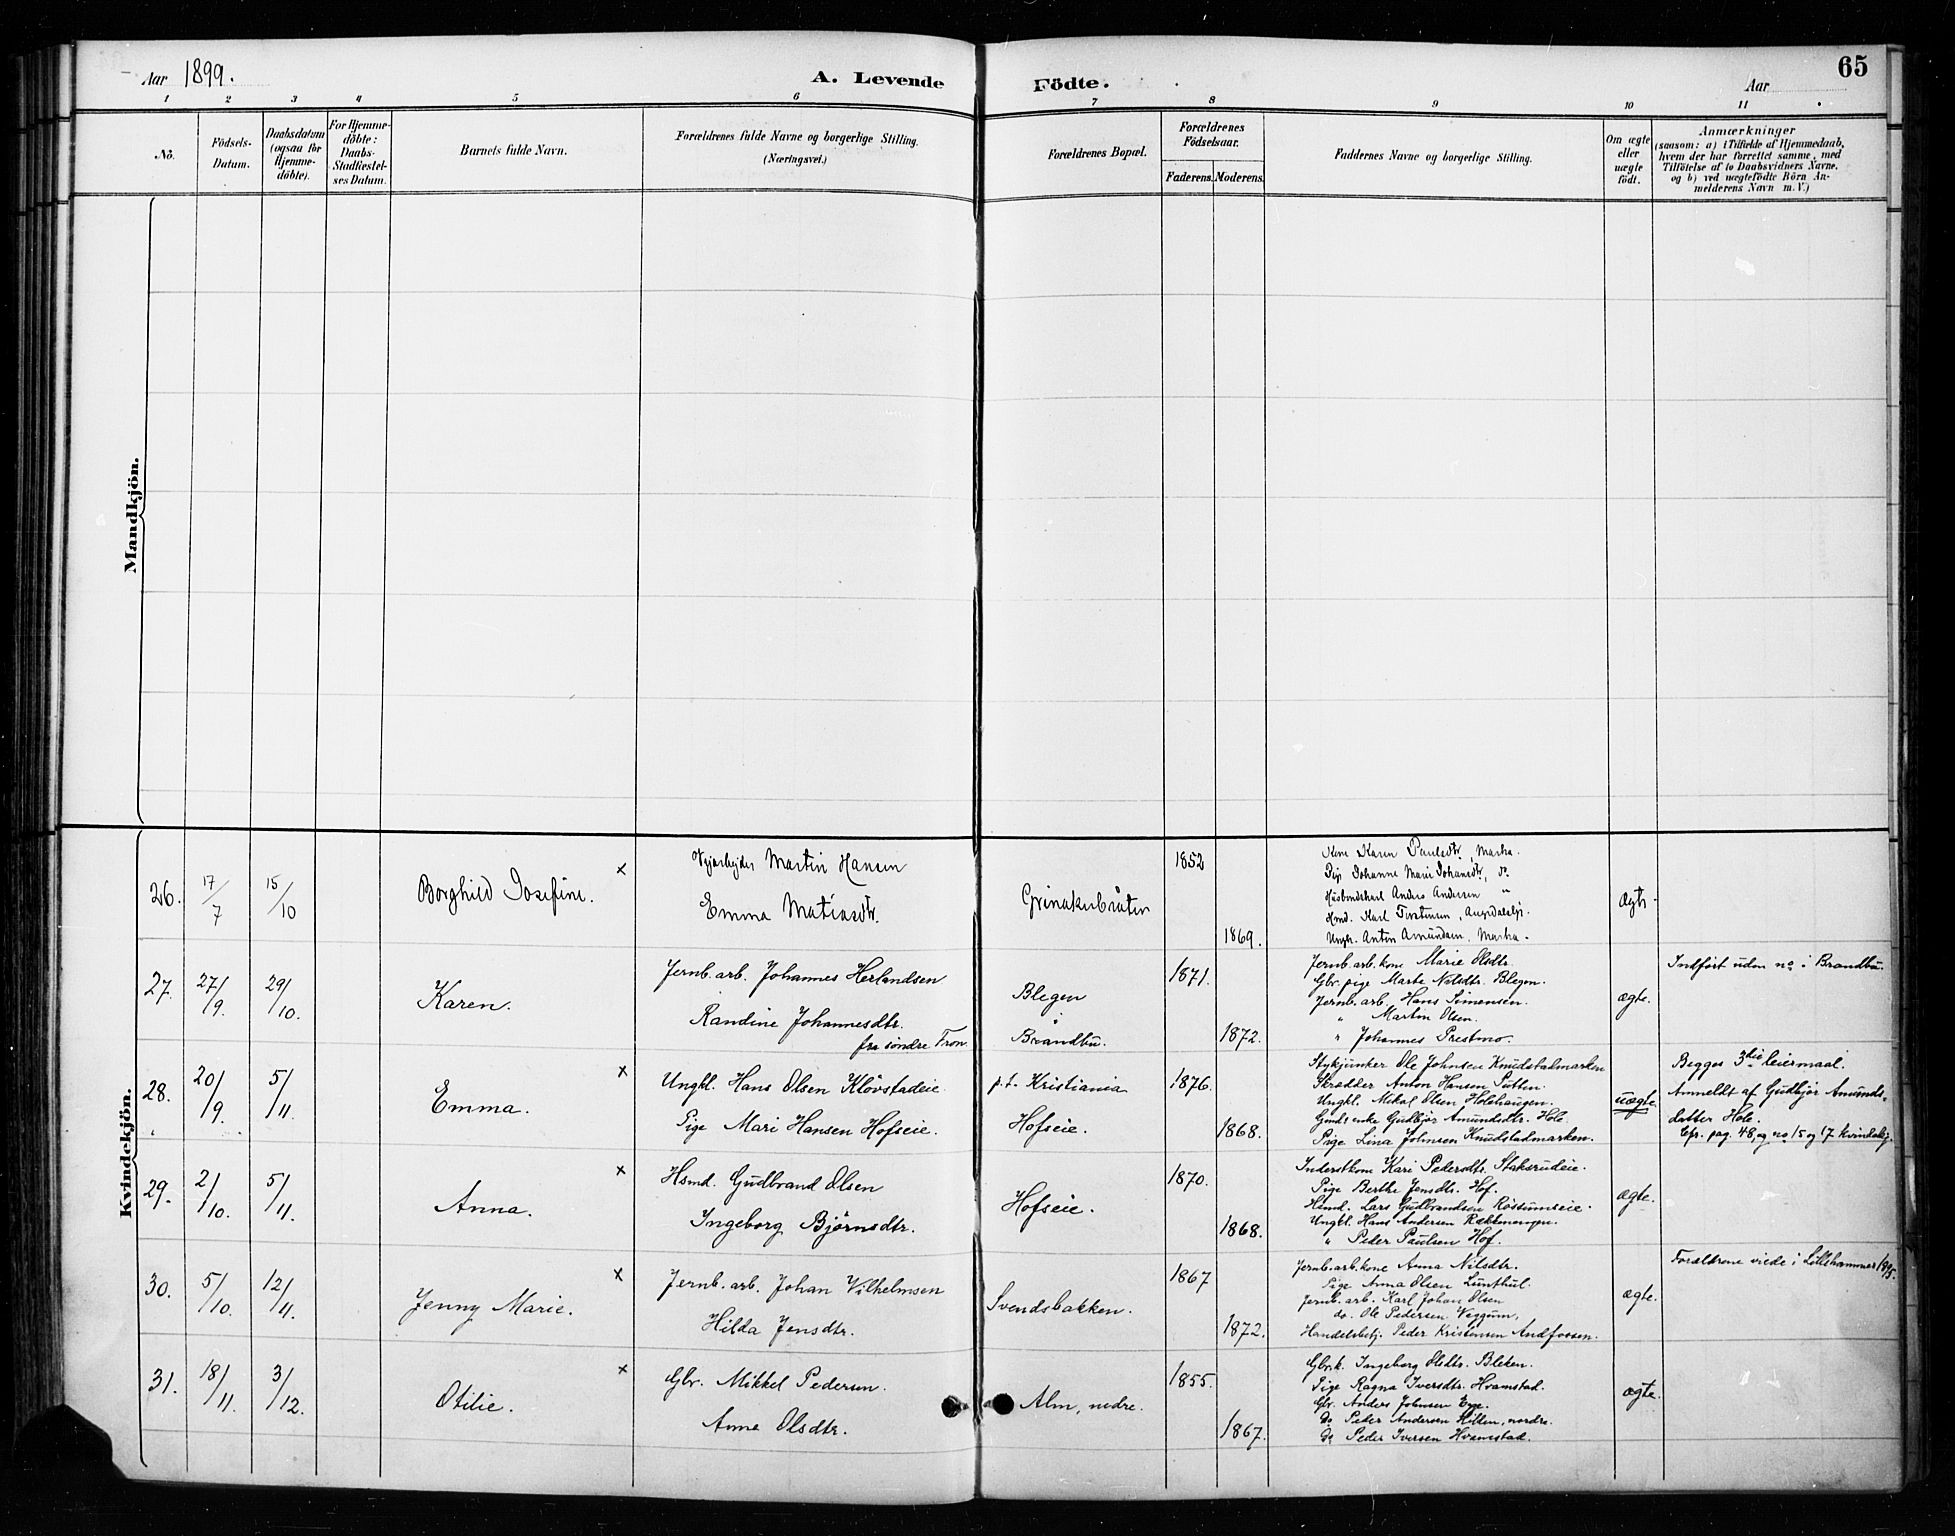 Aar 1899.
A. Levende Födte.
Aar
65
1 2 3 4 5 6 7 8 9 10 11
No.
Födsels-Datum.
Daabsdatum (ogsaa for Hjemme-döbte).
For Hjemme-döbte: Daabs-Stadfæstel-ses Datum.
Barnets fulde Navn.
Forældrenes fulde Navne og borgerlige Stilling.
(Næringsvei.)
Forældrenes Bopæl.
Forældrenes Födselsaar.
Faderens. Moderens.
Faddernes Navne og borgerlige Stilling.
Om ægte eller uægte födt.
Anmærkninger
(saasom: a) i Tilfælde af Hjemmedaab, hvem der har forrettet samme, med Tilföielse af to Daabsvidners Navne, og b) ved uægtefödte Börn An-melderens Navn m. V.)
Mandkjön.
Kvindekjön.
26. 17/7 15/10 Borghild Josefine. x
Martin Hansen
Emma Matiasdtr.
Grinakerbråten
1852
1869.
Kone Karen Paulsdtr, Marka.
Pige Johanne Marie Johansdtr, do
Anders Andersen "
Karl
Ungk. Anton Amundsen, Marka.
ægte.
27. 27/9. 29/10. Karen.
Jernb. arb. Johannes Herlandsen
Randine Johannesdtr.
fra söndre Tron
Blegen
i
Brandbu.
1871.
1872.
Jernb. arb. kone Marie Olsdtr.
Gbr. pige Marte Nilsdtr. Blegen.
Jernb. arb. Hans Simensen.
" Martin Olsen.
" Johannes Prestmo.
ægte.
Indført uden no i Brandbu.
28. 20/9. 5/11. Emma. x
Ungkl. Hans Olsen Klövstadeie
Pige Mari Hansen Hofseie.
p. t. Kristiania
Hofseie.
1876.
1868.
Stykjunker Ole Johnsen Knudstadmarken
Skrædder Anton Hansen Sutten.
Ungkl. Mikal Olsen Holehaugen.
enke Gudbjør Amundsdtr. Hole.
Pige Lina Johnsen Knudstadmarken.
uægte.
Begges 3die leiermaal.
Anmeldt af Gudbjør Amunds-
datter Hole.
Cfr. pag. 48, og no 15 og 17 kvindekj.
29. 2/10. 5/11. Anna. x
Hsmd. Gudbrand Olsen
Ingeborg Björnsdtr.
Hofseie.
1870.
1868.
Inderstkone Kari Pedersdtr. Staksrudeie.
Pige Berthe Jensdtr. Hof.
Hsmd. Lars Gudbrandsen Røssumseie.
Ungkl. Hans Andersen
" Peder Paulsen Hof.
ægte.
30. 5/10. 12/11. Jenny Marie. x
Jernb. arb. Johan Vilhelmsen
Hilda Jensdtr.
Svendsbakken.
1867
1872.
Jernb. arb. kone Anna Nilsdtr.
Pige Anna Olsen Lunthul.
Jernb. arb. Karl Johan Olsen
do. Ole Pedersen
Handelsbetj. Peder Kristensen Andfossen.
ægte.
Forældrene viede i Lillehammer 1895.
31. 18/11. 3/12. Otilie. x
Gbr. Mikkel Pedersen.
Anne Olsdtr.
Alm, nedre.
1855.
1867.
Gbr.k. Ingeborg Olsdtr. Bleken.
Pige Ragna Iversdtr. Hvamstad.
Gbr. Anders Johnsen
do Peter Andersen Hilden, nordre.
do Peder Iversen Hvamstad.
ægte.